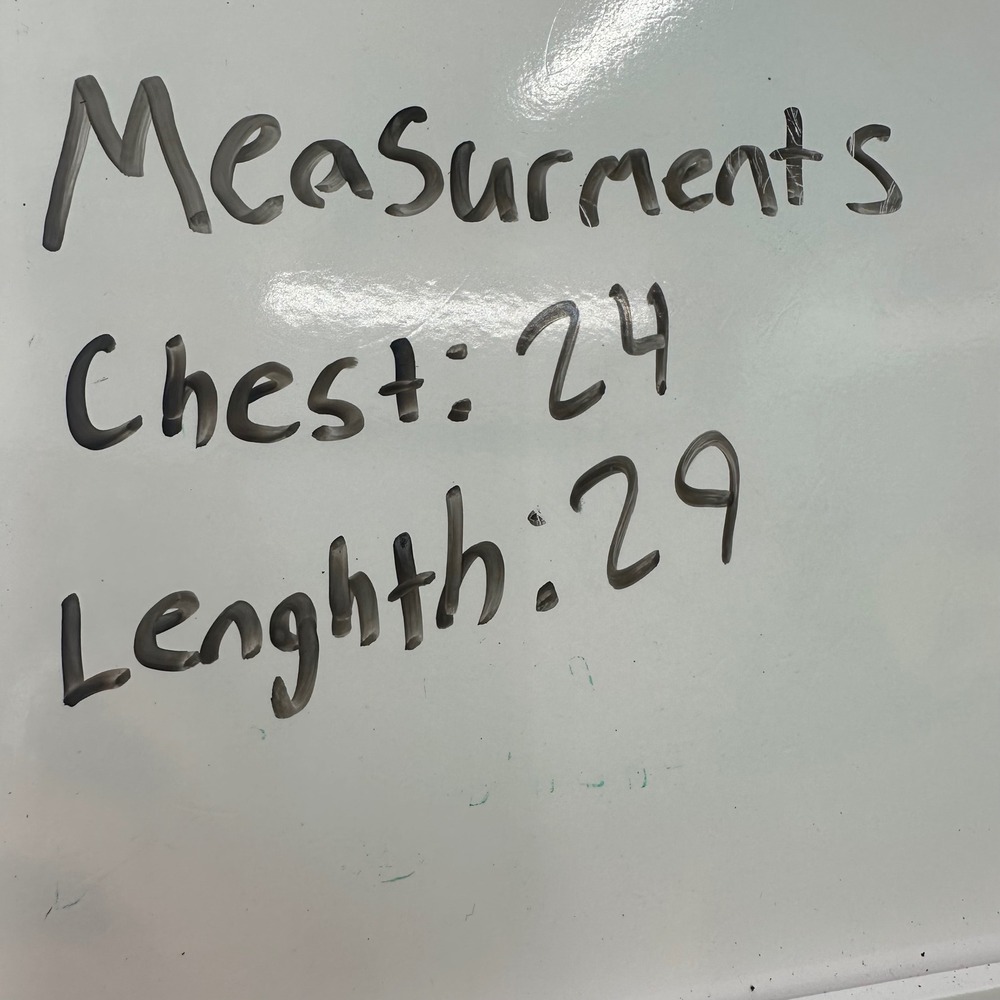 Measurments
Chest: 24
Lenghth: 29